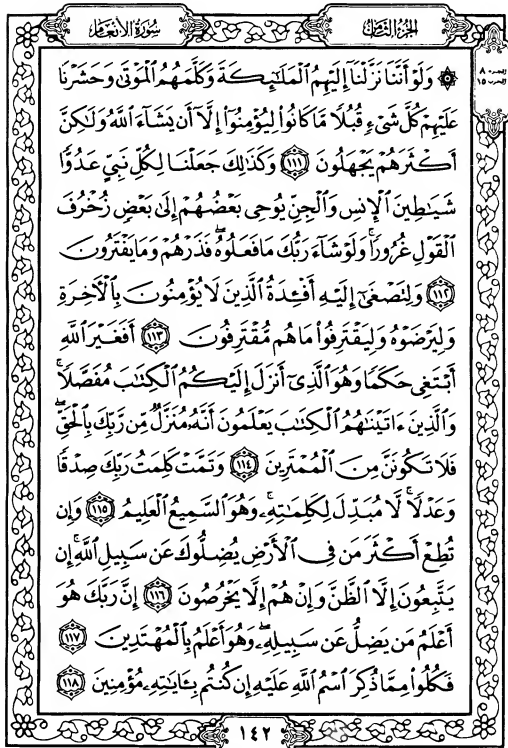 سورة الأنعام
الجزء الثامن
الجزء ٨
الحزب ١٥
۞ وَلَوْ أَنَّنَا نَزَّلْنَا إِلَيْهِمُ ٱلْمَلَٰٓئِكَةَ وَكَلَّمَهُمُ ٱلْمَوْتَىٰ وَحَشَرْنَا
عَلَيْهِمْ كُلَّ شَىْءٍ قُبُلًا مَّا كَانُوا۟ لِيُؤْمِنُوٓا۟ إِلَّآ أَن يَشَآءَ ٱللَّهُ وَلَٰكِنَّ
أَكْثَرَهُمْ يَجْهَلُونَ ١١١ وَكَذَٰلِكَ جَعَلْنَا لِكُلِّ نَبِىٍّ عَدُوًّا
شَيَٰطِينَ ٱلْإِنسِ وَٱلْجِنِّ يُوحِى بَعْضُهُمْ إِلَىٰ بَعْضٍ زُخْرُفَ
ٱلْقَوْلِ غُرُورًا ۚ وَلَوْ شَآءَ رَبُّكَ مَا فَعَلُوهُ ۖ فَذَرْهُمْ وَمَا يَفْتَرُونَ
١١٢ وَلِتَصْغَىٰٓ إِلَيْهِ أَفْـِٔدَةُ ٱلَّذِينَ لَا يُؤْمِنُونَ بِٱلْءَاخِرَةِ
وَلِيَرْضَوْهُ وَلِيَقْتَرِفُوا۟ مَا هُم مُّقْتَرِفُونَ ١١٣ أَفَغَيْرَ ٱللَّهِ
أَبْتَغِى حَكَمًا وَهُوَ ٱلَّذِىٓ أَنزَلَ إِلَيْكُمُ ٱلْكِتَٰبَ مُفَصَّلًا ۚ
وَٱلَّذِينَ ءَاتَيْنَٰهُمُ ٱلْكِتَٰبَ يَعْلَمُونَ أَنَّهُۥ مُنَزَّلٌ مِّن رَّبِّكَ بِٱلْحَقِّ ۖ
فَلَا تَكُونَنَّ مِنَ ٱلْمُمْتَرِينَ ١١٤ وَتَمَّتْ كَلِمَتُ رَبِّكَ صِدْقًا
وَعَدْلًا ۚ لَّا مُبَدِّلَ لِكَلِمَٰتِهِۦ ۚ وَهُوَ ٱلسَّمِيعُ ٱلْعَلِيمُ ١١٥ وَإِن
تُطِعْ أَكْثَرَ مَن فِى ٱلْأَرْضِ يُضِلُّوكَ عَن سَبِيلِ ٱللَّهِ ۚ إِن
يَتَّبِعُونَ إِلَّا ٱلظَّنَّ وَإِنْ هُمْ إِلَّا يَخْرُصُونَ ١١٦ إِنَّ رَبَّكَ هُوَ
أَعْلَمُ مَن يَضِلُّ عَن سَبِيلِهِۦ ۖ وَهُوَ أَعْلَمُ بِٱلْمُهْتَدِينَ ١١٧
فَكُلُوا۟ مِمَّا ذُكِرَ ٱسْمُ ٱللَّهِ عَلَيْهِ إِن كُنتُم بِـَٔايَٰتِهِۦ مُؤْمِنِينَ ١١٨
١٤٢